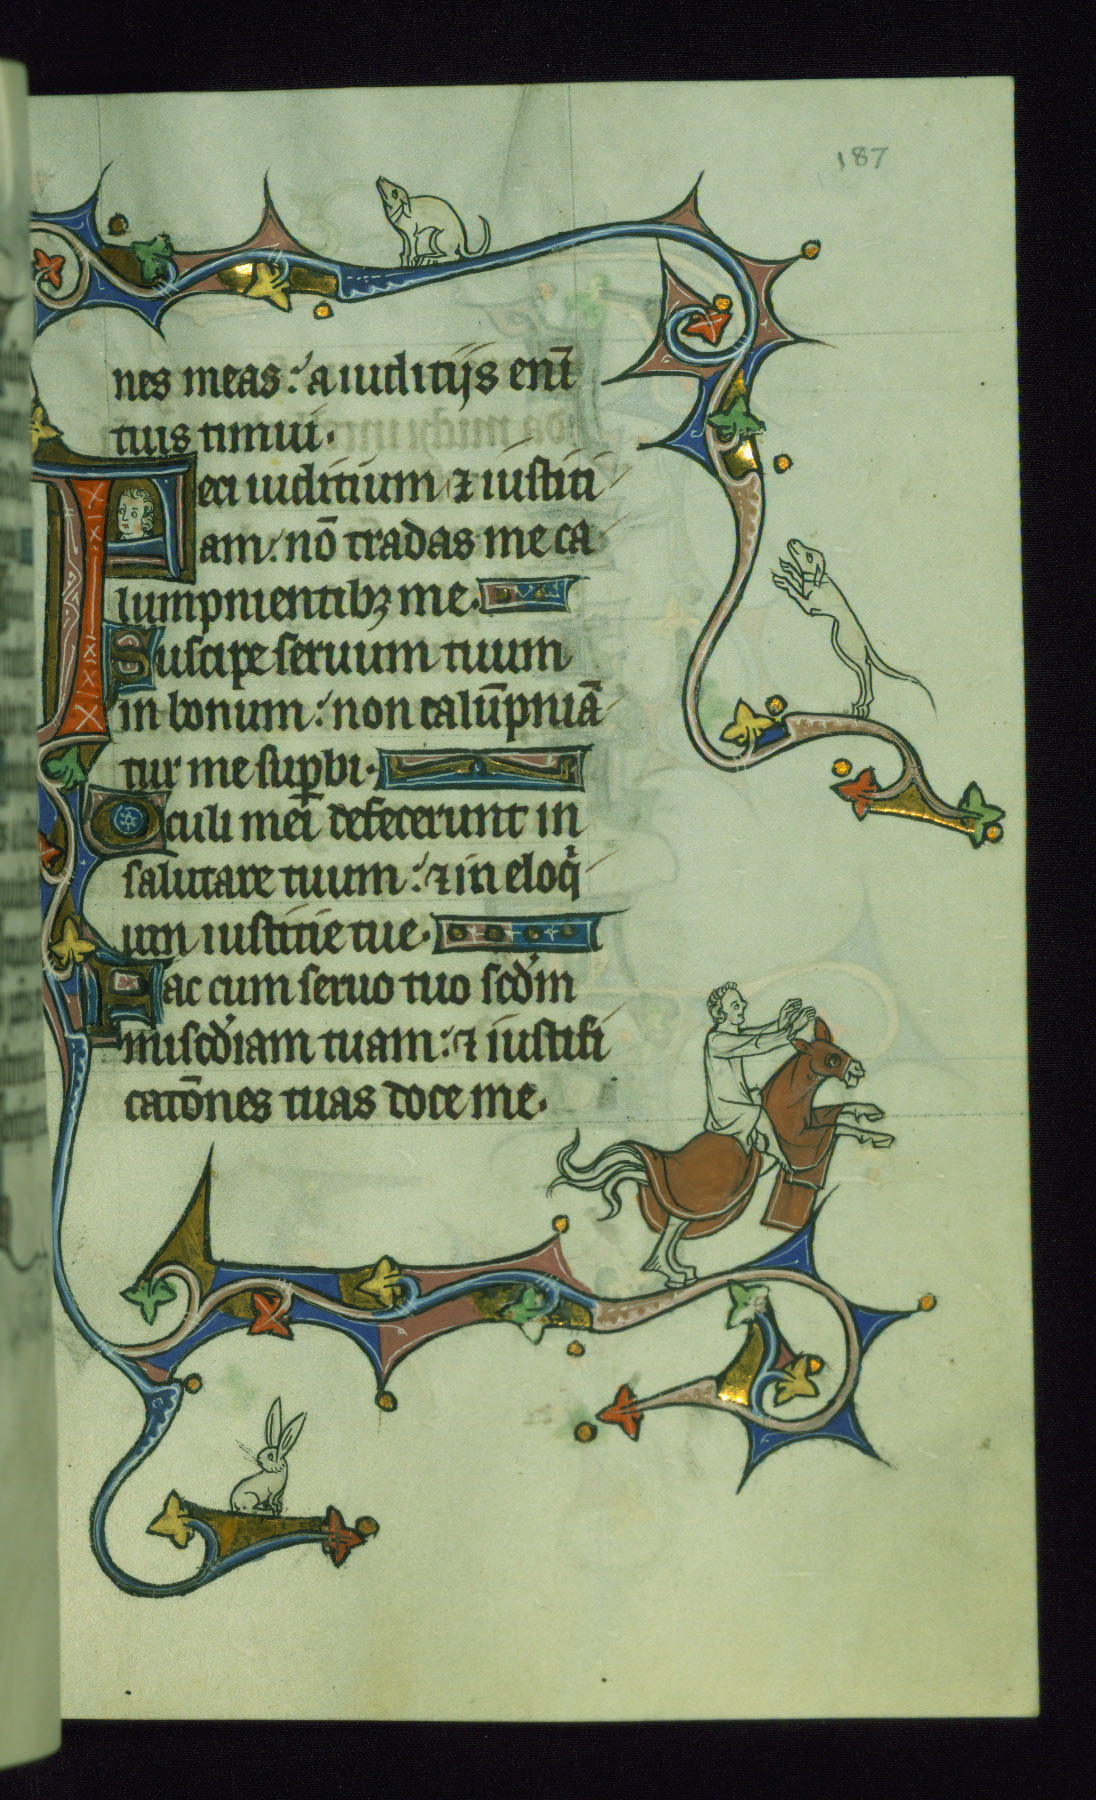 187
nes meas: a iuditijs eni̅
tuis timui.
Feci iuditium ⁊ iustici
am: no̅ tradas me ca
lumpnientibꝫ me.
Suscipe seruum tuum
in bonum: non calu̅pnia̅
tur me sup̱bi.
Oculi mei defecerunt in
salutare tuum: ⁊ in eloqⁱ
um iusticie tue.
Fac cum seruo tuo scd̓m
misc̓diam tuam: ⁊ iustifi
cato̅nes tuas doce me.